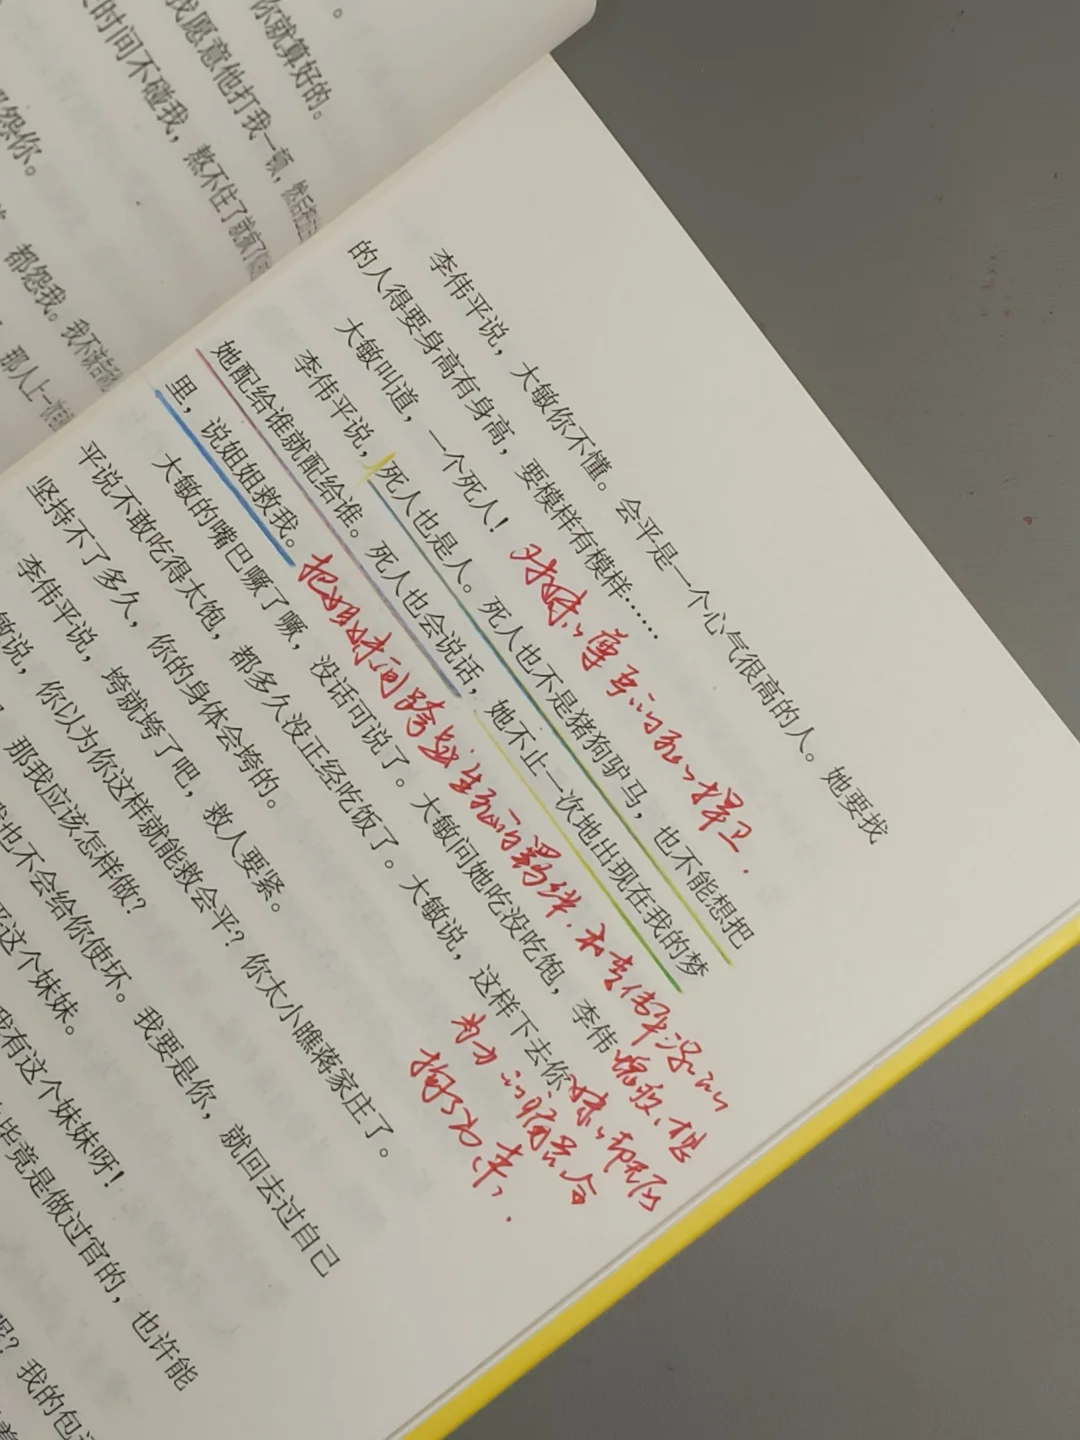 你就算好的。
我愿意他打我一顿，
时间不碰我，熬不住了就疯了
怨你。
都怨我。我不该
那人上一
李伟平说，大敏你不懂。会平是一个心气很高的人。她要找
的人得要身高有身高，要模样有模样……
大敏叫道，一个死人！
对妹妹尊严的死死捍卫.
李伟平说，死人也是人。死人也不是猪狗驴马，也不能想把
她配给谁就配给谁。死人也会说话，她不止一次地出现在我的梦
里，说姐姐救我。
把姐妹间跨越生死的羁绊.和李伟平深深的
愧疚.想
妹妹却无能
为力的痛苦全
掏了出来,.
大敏的嘴巴噘了噘，没话可说了。大敏问她吃没吃饱，李伟
平说不敢吃得太饱，都多久没正经吃饭了。大敏说，这样下去你
坚持不了多久，你的身体会垮的。
李伟平说，垮就垮了吧，救人要紧。
敏说，你以为你这样就能救会平？你太小瞧蒋家庄了。
那我应该怎样做？
也不会给你使坏。我要是你，就回去过自己
这个妹妹。
我有这个妹妹呀！
毕竟是做过官的，也许能
呢？我的包